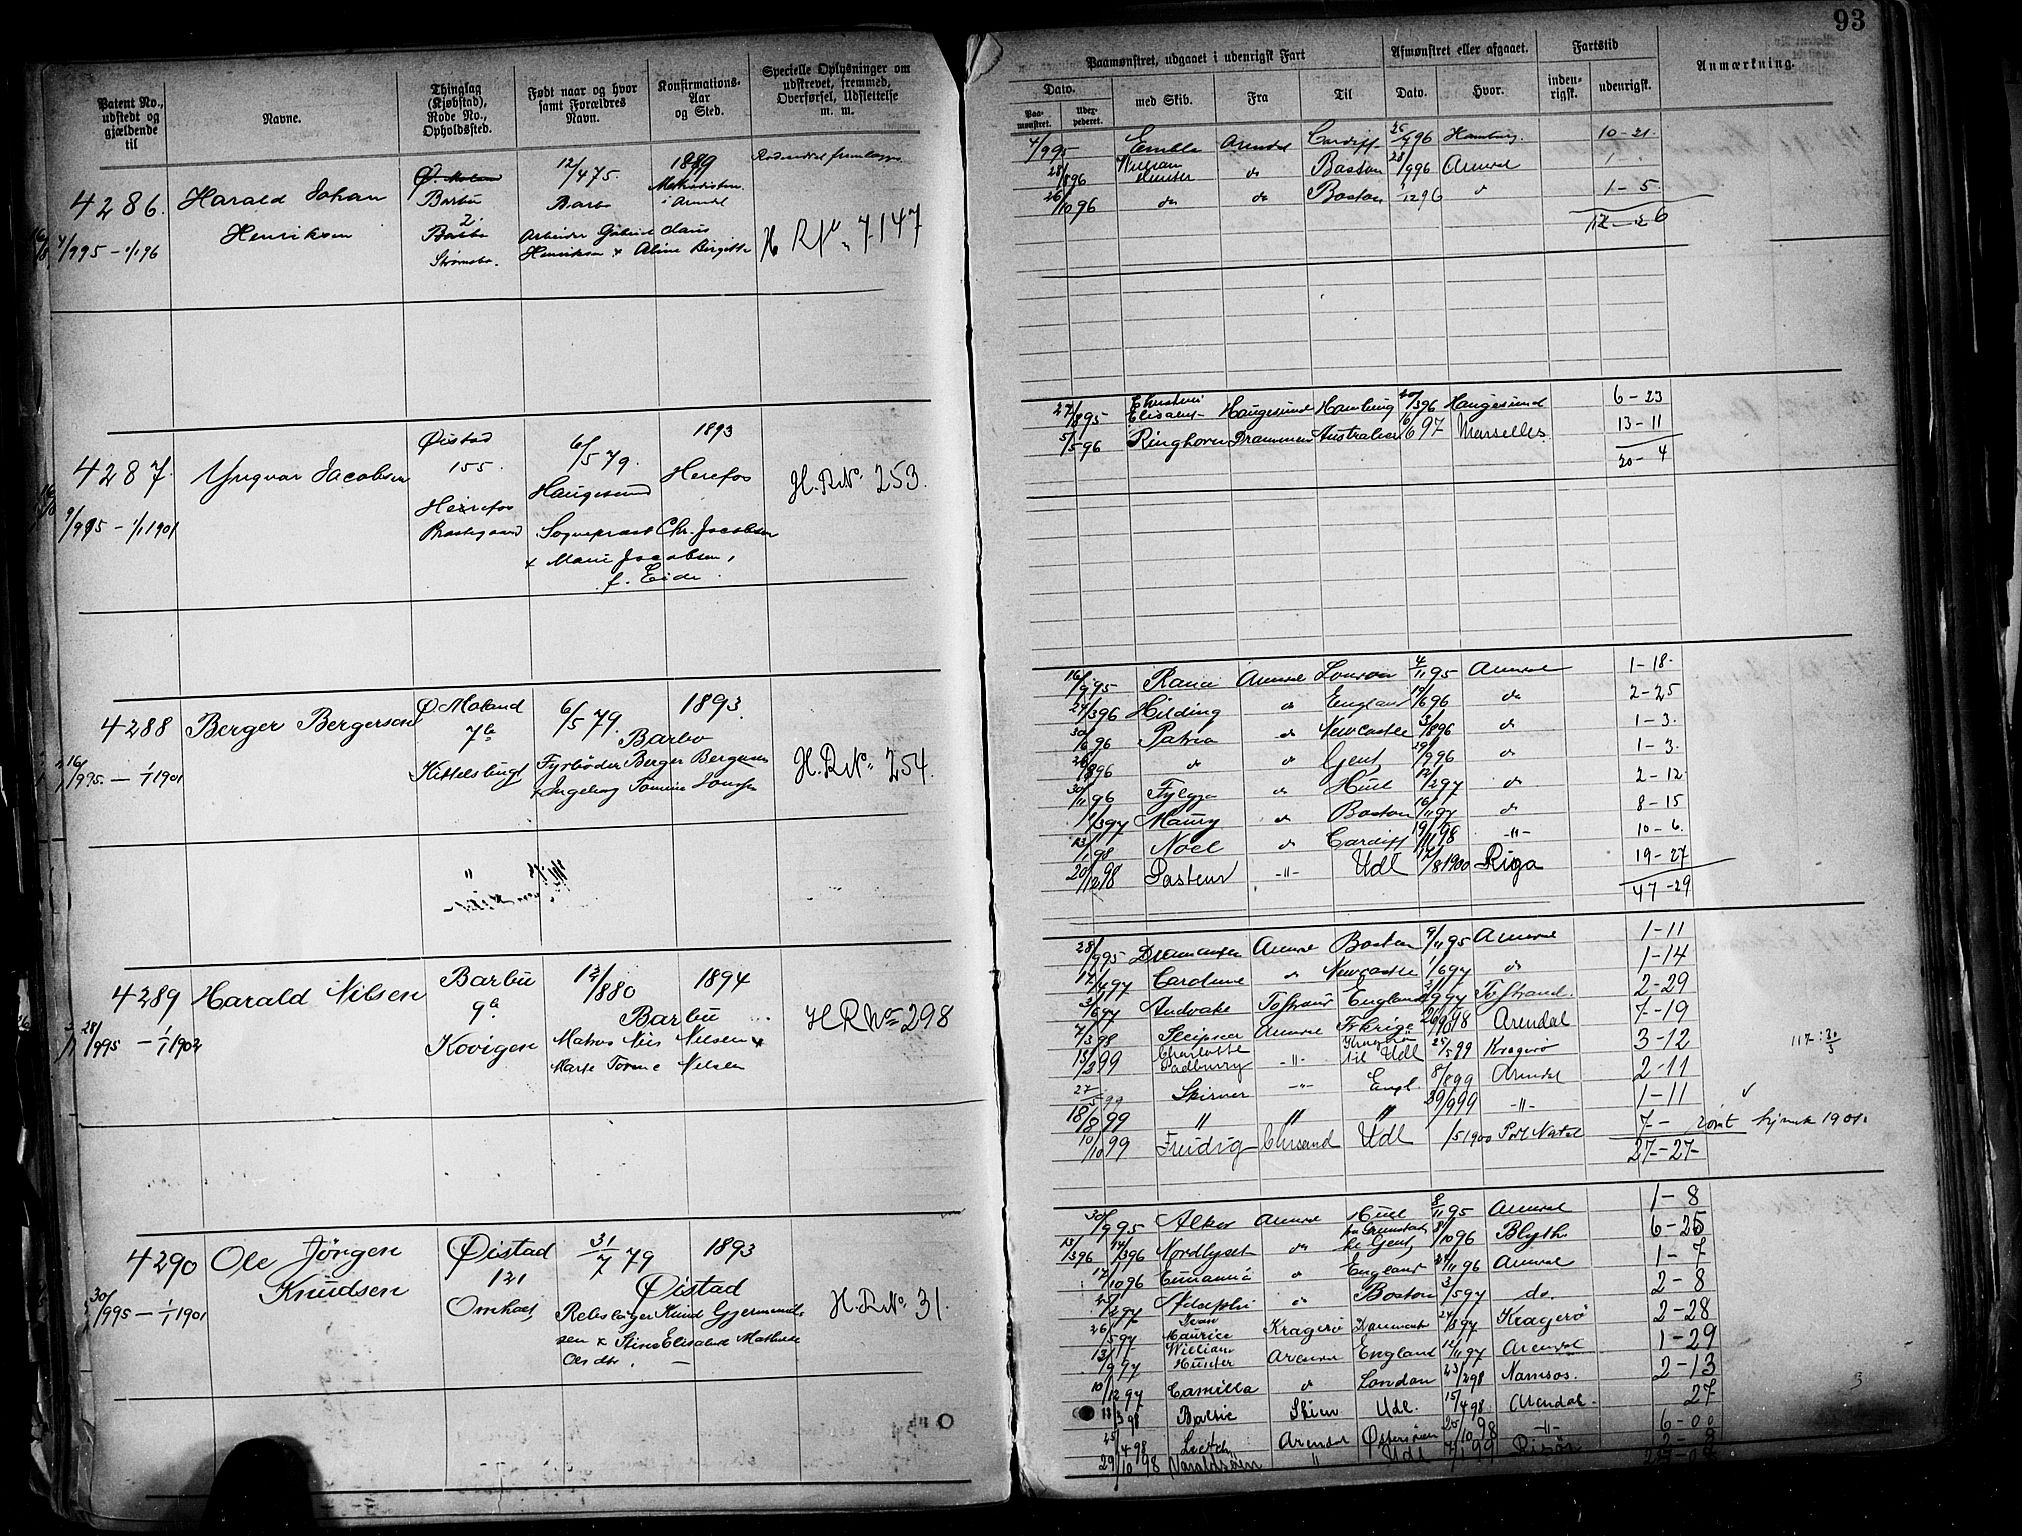 93
Patent No., udstedt og gjældende til
Navne.
Thinglag (Kjøbstad), Rode No., Opholdssted.
Født naar og hvor samt Forældres Navn.
Konfirmations-Aar og Sted.
Specielle Oplysninger om udskrevet, fremmed, Overførsel, Udslettelse m. m.
Paamønstret, udgaaet i udenrigsk Fart
Afmønstret eller afgaaet.
Fartstid
Anmærkning.
Dato.
Paa-mønstret.
Uder-pederet.
med Skib.
Fra
Til
Dato.
Hvor.
inden-rigsk.
udenrigsk.
4286. Harald Johan Henriksen
7/9 95 - 1/1 96
Ø. Moland
Barbu
2
Barbo
Strømsbo.
12/4 75.
Barbo
Arbeider Gabriel Claus
Henriksen & Aline Birgitte
1889
Methodisten
i Arendal
7147
4/9 95 Embla Arendal Cardiff 25/7 96 Hamburg. 10-21
28/8 96 William Hunter do Boston 28/9 96 Arendal 1
26/10 96 do do Boston 1/12 96 do 1-5
12-26
4287. Yngvar Jacobsen
9/9 95 - 1/1 1901
Øistad
155.
Herefos
Prestegaard
6/5 79.
Haugesund
Sogneprest Chr. Jacobsen
& Marie Jacobsen,
f. Eide.
1893
Herefos
H.R.No. 253.
27/8 95 Christine Elisabeth Haugesund Hamburg 20/3 96 Haugesund 6-23
5/5 96 Ringhorn Drammen Australien 16/6 97 Marseilles. 13-11
20-4
4288 Berger Bergersen
16/9 95. - 1/1 1901
Ø Moland
7b
Kittelsbugt
6/5 79.
Barbo
Fyrbøder Berger Bergersen
& Ingeborg Tomine Jonsen
1893.
H.R.No. 254.
16/9 95 Rana Arendal London 4/11 95 Arendal 1-18.
24/3 96 Hilding do England 19/6 96 do 2-25
30/6 96 Patria do Newcastle 3/8 96 do 1-3.
26/8 96 do do Gent 29/9 96 do 1-3.
30/11 96 Fylgja do Hull 12/2 97 do 2-12
1/3 97 Maury do Boston 16/11 97 do 8-15
13/1 98 Noel do Cardiff 19/11 98 -"- 10-6.
20/12 98 Pasteur -"- Udl 17/8 1900 Riga 19-27
47-29
4289 Harald Nilsen
28/9 95 - 1/1 1902
Barbu
9a
Kovigen
12/8 80
Barbu
Matros Nils Nilsen &
Marte Tomine Nilsen
1894
H R No 298
28/9 95 Dramanten Arendal Boston 9/11 95 Arendal 1-11
17/4 97 Caroline do Newcastle 1/6 97 do 1-14
3/6 97 Andvake Tvstrand England 2/9 97 Tvstrand. 2-29
7/3 98 Sleipner Arendal Frkrige 26/10 98 Arendal 7-19
13/2 99 Charlotte Padbury -"- Kragerø til Udl 25/5 99 Kragerø 3-12
27/5 99 Skirner -"- Engl. 8/8 99 Arendal 2-11
18/8 99 " " " 29/9 99 -"- 1-11
10/10 99 Freidig Chrsand Udl /5 1900 Port Natal 7-
27-27-
rømt hjemk 1901.
117: 30/5
4290 Ole Jörgen Knudsen
30/9 95 - 1/1 1901
Øistad
121
Omholt
31/7 79
Øistad
Rebslager Knud Gjermundsen & Stine Elisabeth Mathilde
Ols dtr.
1893
H.R.No. 31.
30/9 95 Alker Arendal Hull 8/11 95 Arendal 1-8
13/3 96 14/3 96 Nordlyset do fra Grimstad til Gent, 8/10 96 Blyth. 6-25
17/10 96 do England 24/11 96 Arendal 1-7
25/2 97 Adolphe do Boston 3/5 97 do. 2-8
26/5 97 Jean Maurice Kragerø Danmark 24/8 97 Kragerø 2-28
13/9 97 William Hunter Arendal England 12/11 97 Arendal 1-29
10/12 97 Camilla do London 23/2 98 Namsos. 2-13
18/3 98 Baltic Skien Udl. 15/4 98. Arendal. 27
25/4 98 Arendal Østersøen 25/10 98 -"- 6-00
29/10 98 Varaldsöen " Udl 7/1 99 Risør 2-8
3